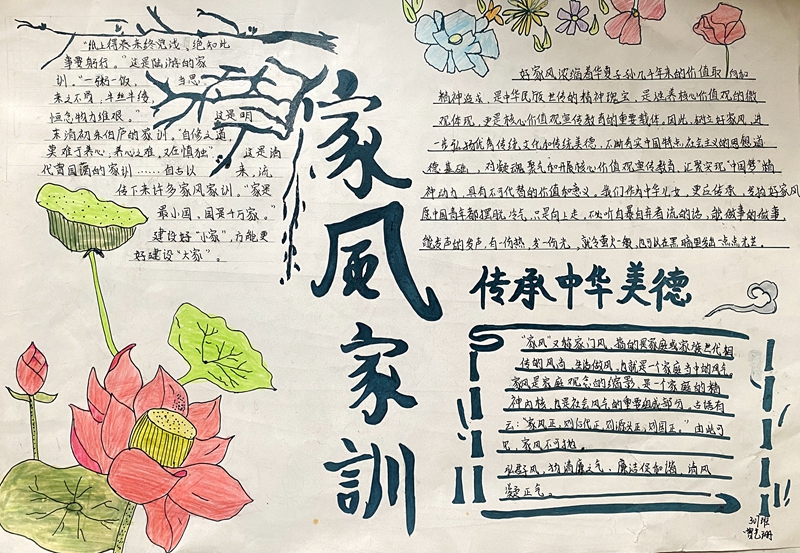 "纸上得来终觉浅,绝知此
事要躬行。"这是陆游的家
训。"一粥一饭, 当思
来之不易,半丝半缕,
恒念物力维艰。" 这是明
末清初朱伯庐的家训。"自修之道,
莫难于养心;养心之难,又在慎独" 这是清
代曾国藩的家训……自古以 来,流
传下来许多家风家训。"家是
最小国,国是千万家。"
建设好"小家",方能更
好建设"大家"。
家风家訓
好家风浓缩着华夏子孙几千年来的价值取
精神追求,是中华民族世传的精神瑰宝,是培养核心价值观的微
观体现,更是核心价值观宣传教育的重要载体。因此,树立好家风,进一
步弘扬优秀传统文化和传统美德,不断夯实中国特点社会主义的思想道
德基础,对凝魂聚气和开展核心价值观宣传教育,汇聚实现"中国梦"的
神动力,具有不可代替的价值和意义。我们作为中华儿女,更应传承、发扬好家风
愿中国青年都摆脱冷气,只是向上走,不必听自暴自弃者流的话。能做事的做事,
能发声的发声。有一份热,发一份光,就令萤火一般,也可以在黑暗里发出一点点光芒。
传承中华美德
"家风"又称家门风,指的是家庭或家族世代相
传的风尚、生活作风,也就是一个家庭当中的风气。
家风是家庭观念的缩影,是一个家庭的精
神内核,也是社会风气的重要组成部分。古语有
云:"家风正,则后代正,则源头正,则国正。"由此可
见,家风不可挡。
弘好风,扬清廉之气,廉洁促和谐,清风
凝正气。
301班